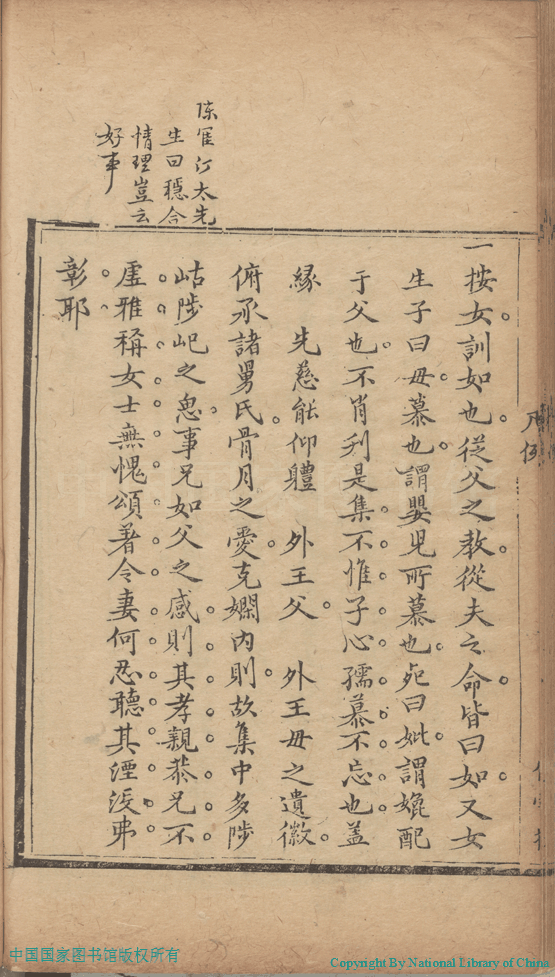 陈宦訂太先
生曰穩合
情理豈云
好事
凡例
一按女訓如也從父之教從夫之命皆曰如又女
生子曰毋慕也謂嬰兒所慕也死曰妣謂媲配
于父也不肖刋是集不惟子心孺慕不忘也盖
緣　先慈能仰軆　外王父　外王毋之遺徽
俯承諸舅氏骨月之愛克嫻内則故集中多陟
岵陟屺之思事兄如父之感則其孝親恭兄不
虚雅稱女士無愧頌著令妻何忍聽其湮沒弗
彰耶
中国国家图书馆版权所有
Copyright By National Library of China